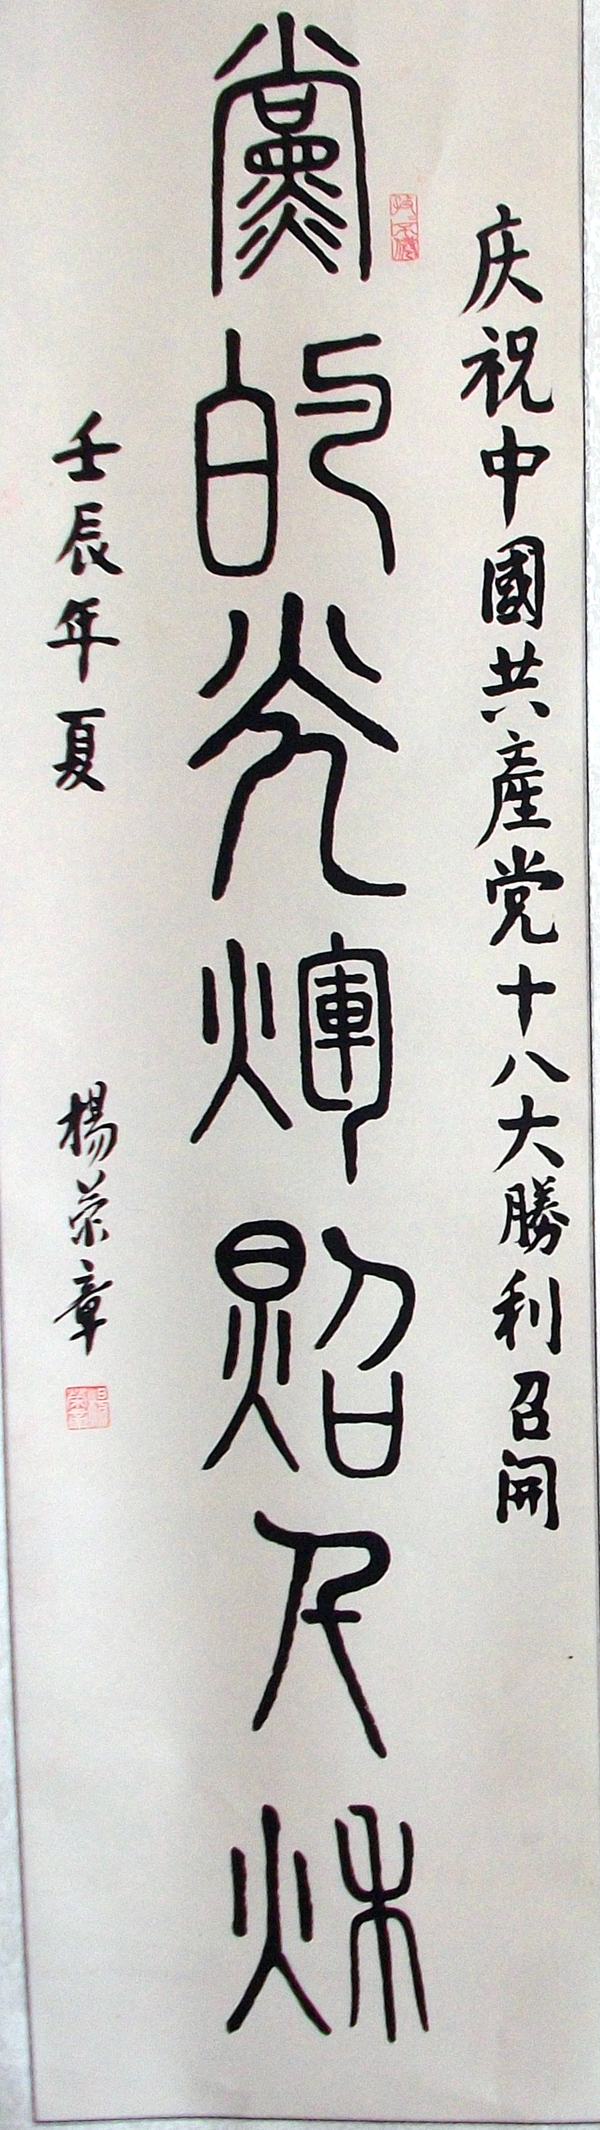 庆祝中國共産党十八大勝利召開
黨的光煇照千秋
壬辰年夏 楊荣章